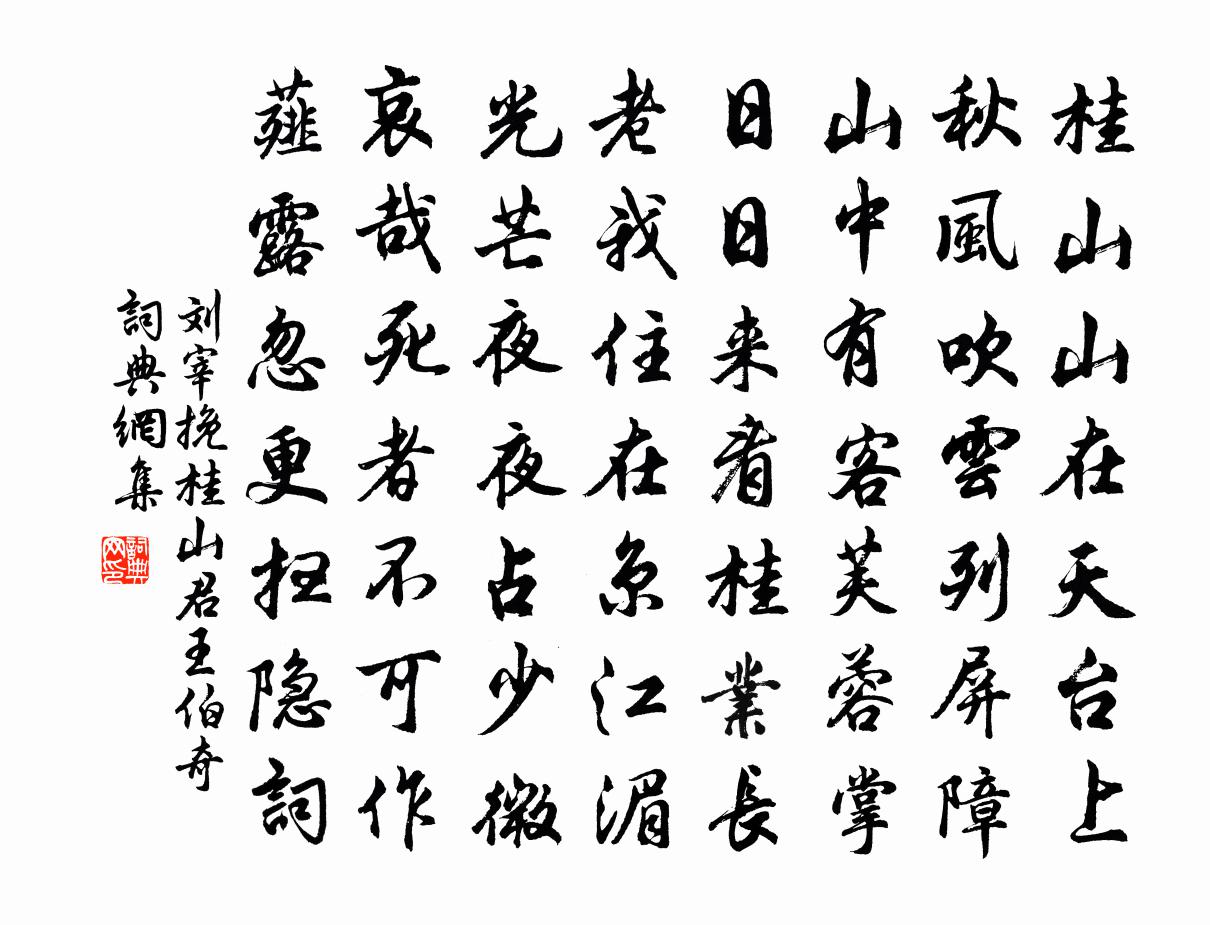 桂山山在天台上
秋風吹雲列屏障
山中有客芙蓉掌
日日来看桂業長
老我住在京江湄
光芒夜夜占少微
哀哉死者不可作
薤露忽更招隐詞
刘宰挽桂山君王伯奇
詞典網集
詞典网印